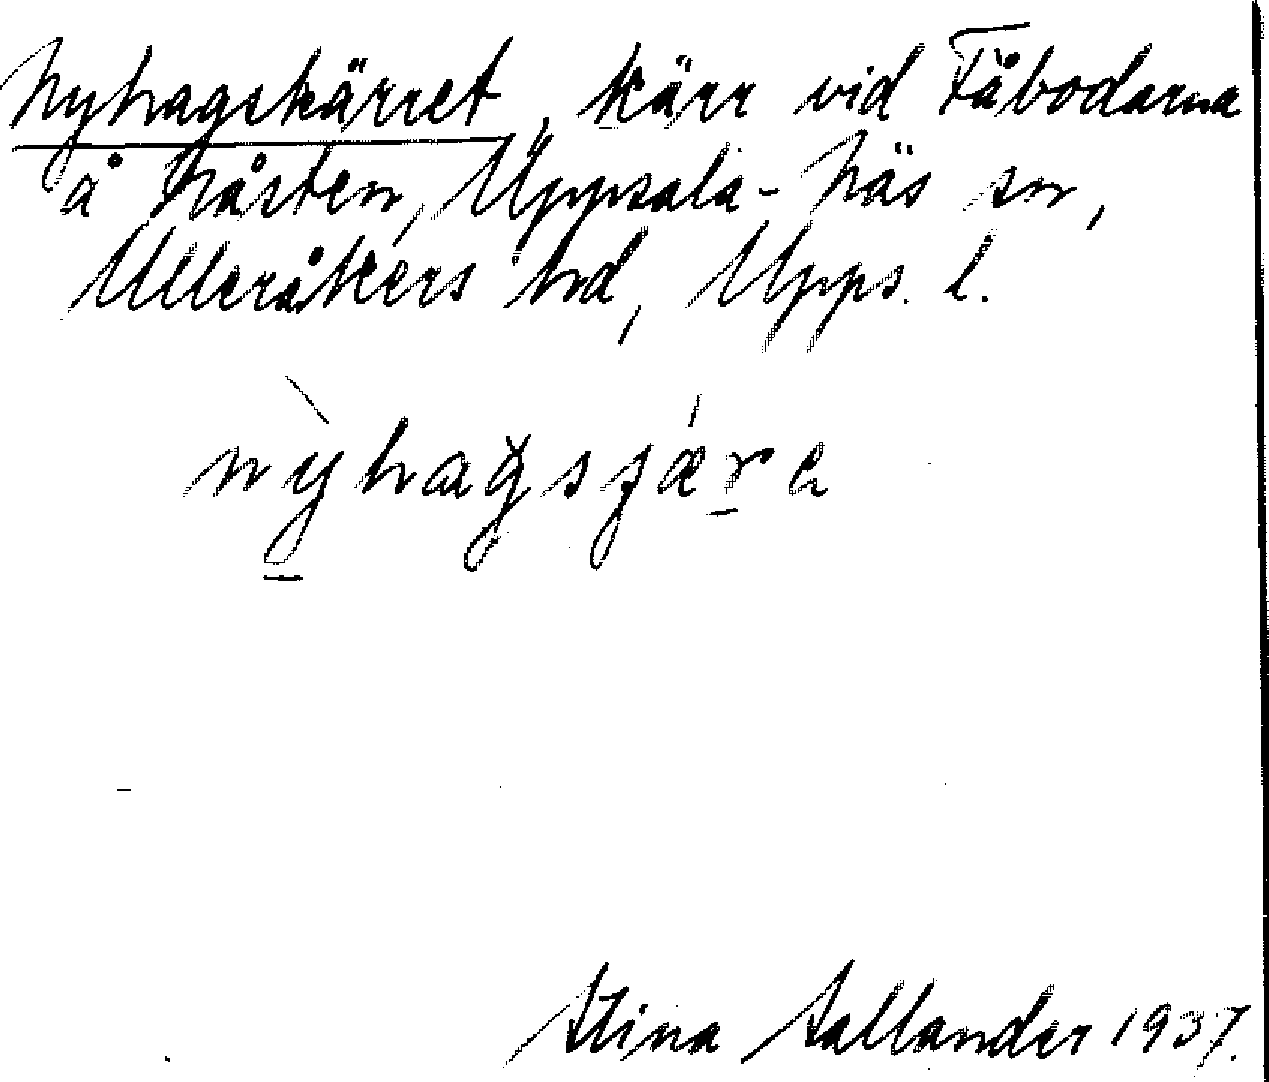 Nyhagskärret, kärr vid Fäbodarna
å Nåsten, Uppsala-Näs sn,
Ulleråkers hd, Upps. l.
nỳhagsjǽre
Stina Sallander 1937.